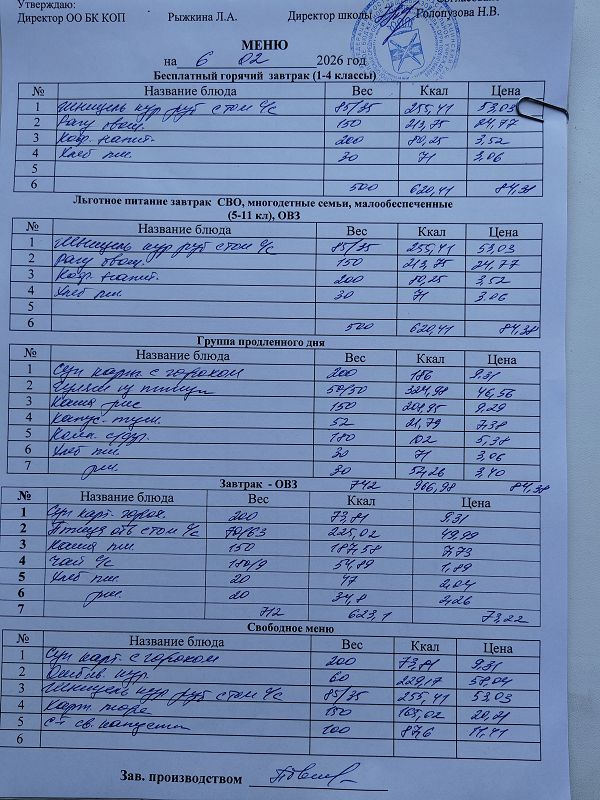 Утверждаю:
Директор ОО БК КОП Рыжкина Л.А. Директор школы Голопузова Н.В.
МЕНЮ
на 6 02 2026 год
Бесплатный горячий завтрак (1-4 классы)
№ Название блюда Вес Ккал Цена
1 Шницель кур руб с том с/с 85/35 255,41 53,03
2 Рагу овощ. 150 213,75 24,77
3 Коф. напит. 200 80,25 3,52
4 Хлеб пш. 30 71 3,06
5
6 500 620,41 84,38
Льготное питание завтрак СВО, многодетные семьи, малообеспеченные
(5-11 кл), ОВЗ
№ Название блюда Вес Ккал Цена
1 Шницель кур руб с том с/с 85/35 255,41 53,03
2 Рагу овощ. 150 213,75 24,77
3 Коф. напит. 200 80,25 3,52
4 Хлеб пш. 30 71 3.06
5
6 500 620,41 84,38
Группа продленного дня
№ Название блюда Вес Ккал Цена
1 Суп карт. с горохом 200 186 9.31
2 Гуляш из птицы 50/50 324,98 46,56
3 Каша рис 150 208,95 9.29
4 Капус. туш. 52 21,79 7.38
5 Комп. с/фр. 180 102 5,38
6 Хлеб пш. 30 71 3,06
7 рж. 30 52,26 3,40
712 966,98 84,38
Завтрак - ОВЗ
№ Название блюда Вес Ккал Цена
1 Суп карт. горох. 200 73,81 9.31
2 Птица отв с том с/с 70/63 225,02 49,99
3 Каша пш. 150 187,58 7,73
4 Чай с/с 180/9 54,89 1,89
5 Хлеб пш. 20 47 2,04
6 рж. 20 34,8 2,26
7 712 623,1 73,22
Свободное меню
№ Название блюда Вес Ккал Цена
1 Суп карт. с горохом 200 73,81 9.31
2 кур. 60 229,17 58,04
3 Шницель кур руб с том с/с 85/35 255,41 53,03
4 Карт. пюре 150 165,02 20,21
5 С-т св. капусты 100 87,6 11,41
6
Зав. производством